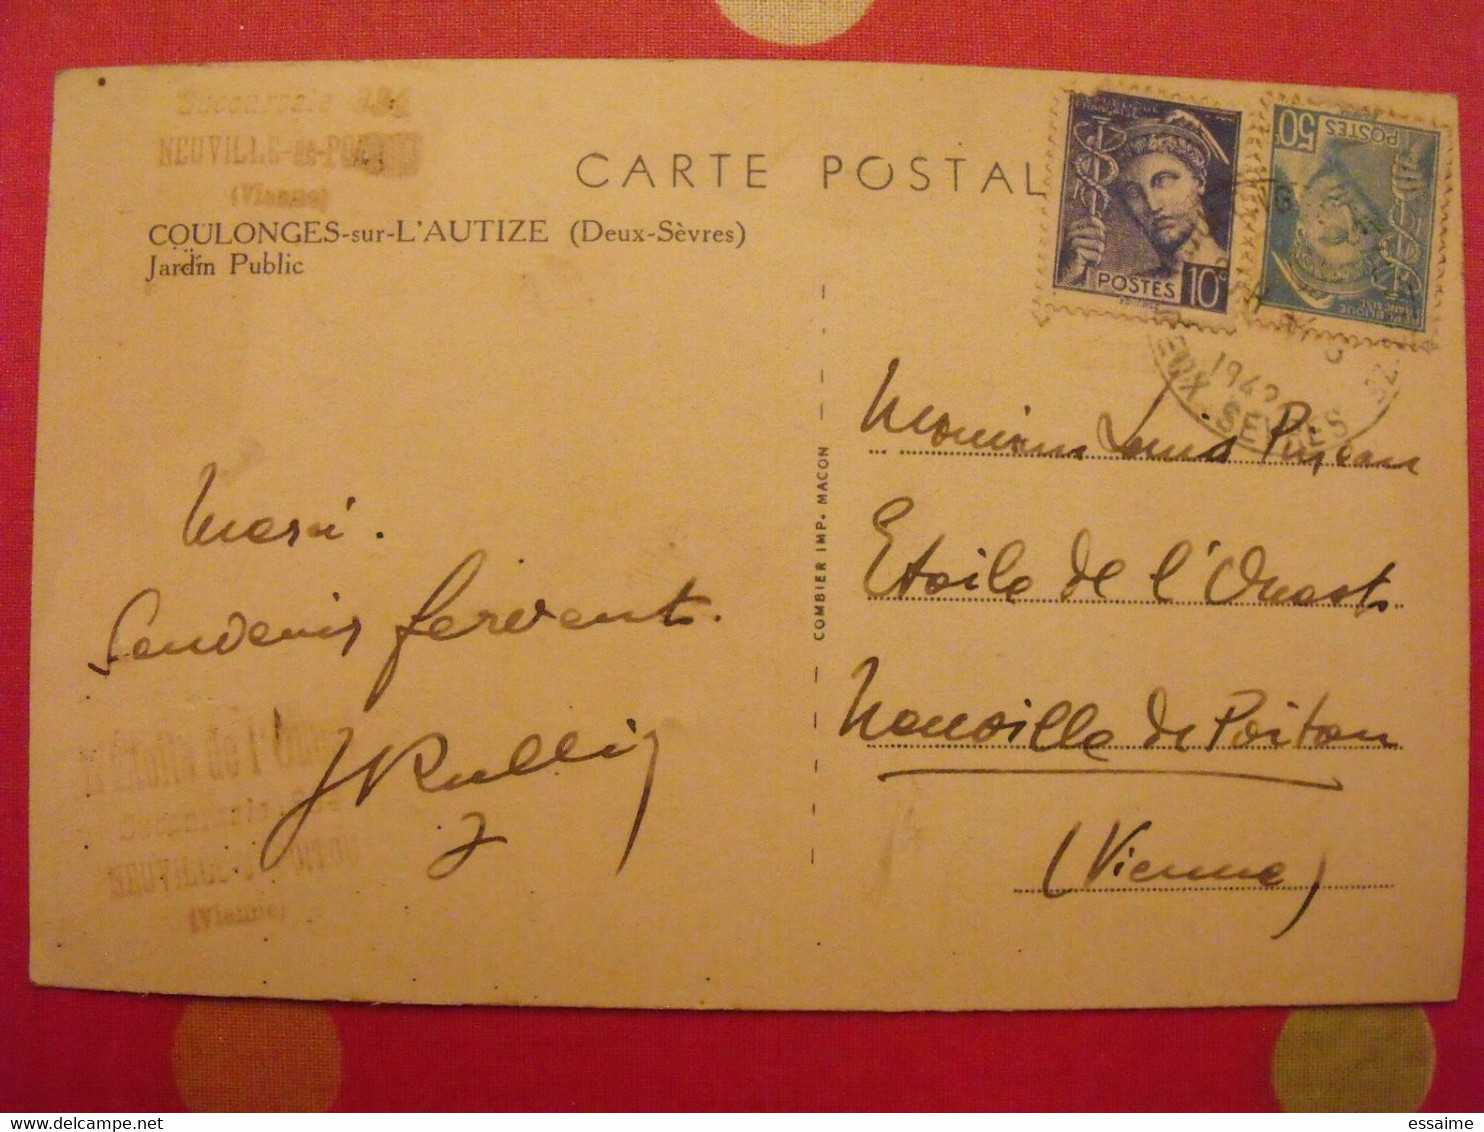 Succursale 324
NEUVILLE-de-POITOU
(Vienne)
CARTE POSTAL
COULONGES-sur-L'AUTIZE (Deux-Sèvres)
Jardin Public
POSTES 10c
50
POSTES
1942
SEVRES
COMBIER IMP. MACON
Merci.
Souvenirs fervents.
L'Etoile de l'Ouest
Succursale
NEUVILLE-de-POITOU
(Vienne)
Monsieur Louis
Etoile de l'Ouest
Neuville de Poitou
(Vienne)
essaime